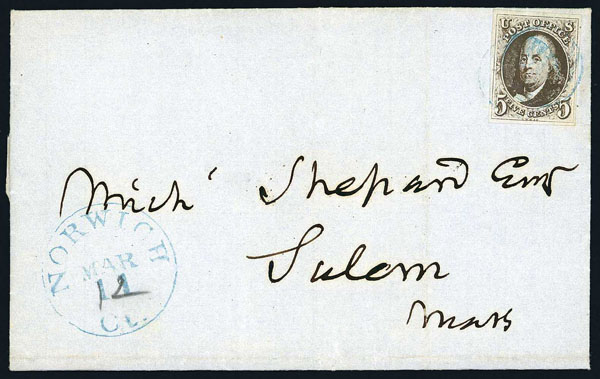 U S
POST OFFICE
FIVE CENTS
5 5
Mich' Shepard Esqr
Salem
Mass
NORWICH
MAR
11
12
Ct.